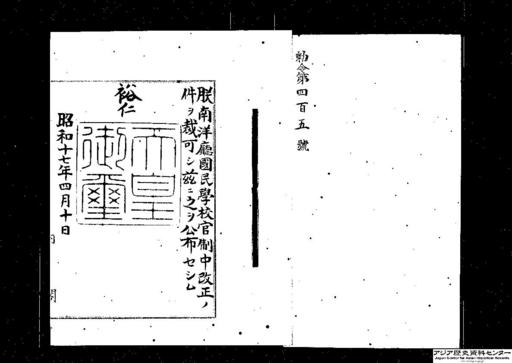 勅令第四百五號
朕南洋廳國民學校官制中改正ノ
件ヲ裁可シ茲ニ之ヲ公布セシム
裕仁
天皇
御璽
昭和十七年四月十日
内閣
アジア歴史資料センター
Japan Center for Asian Historical Records